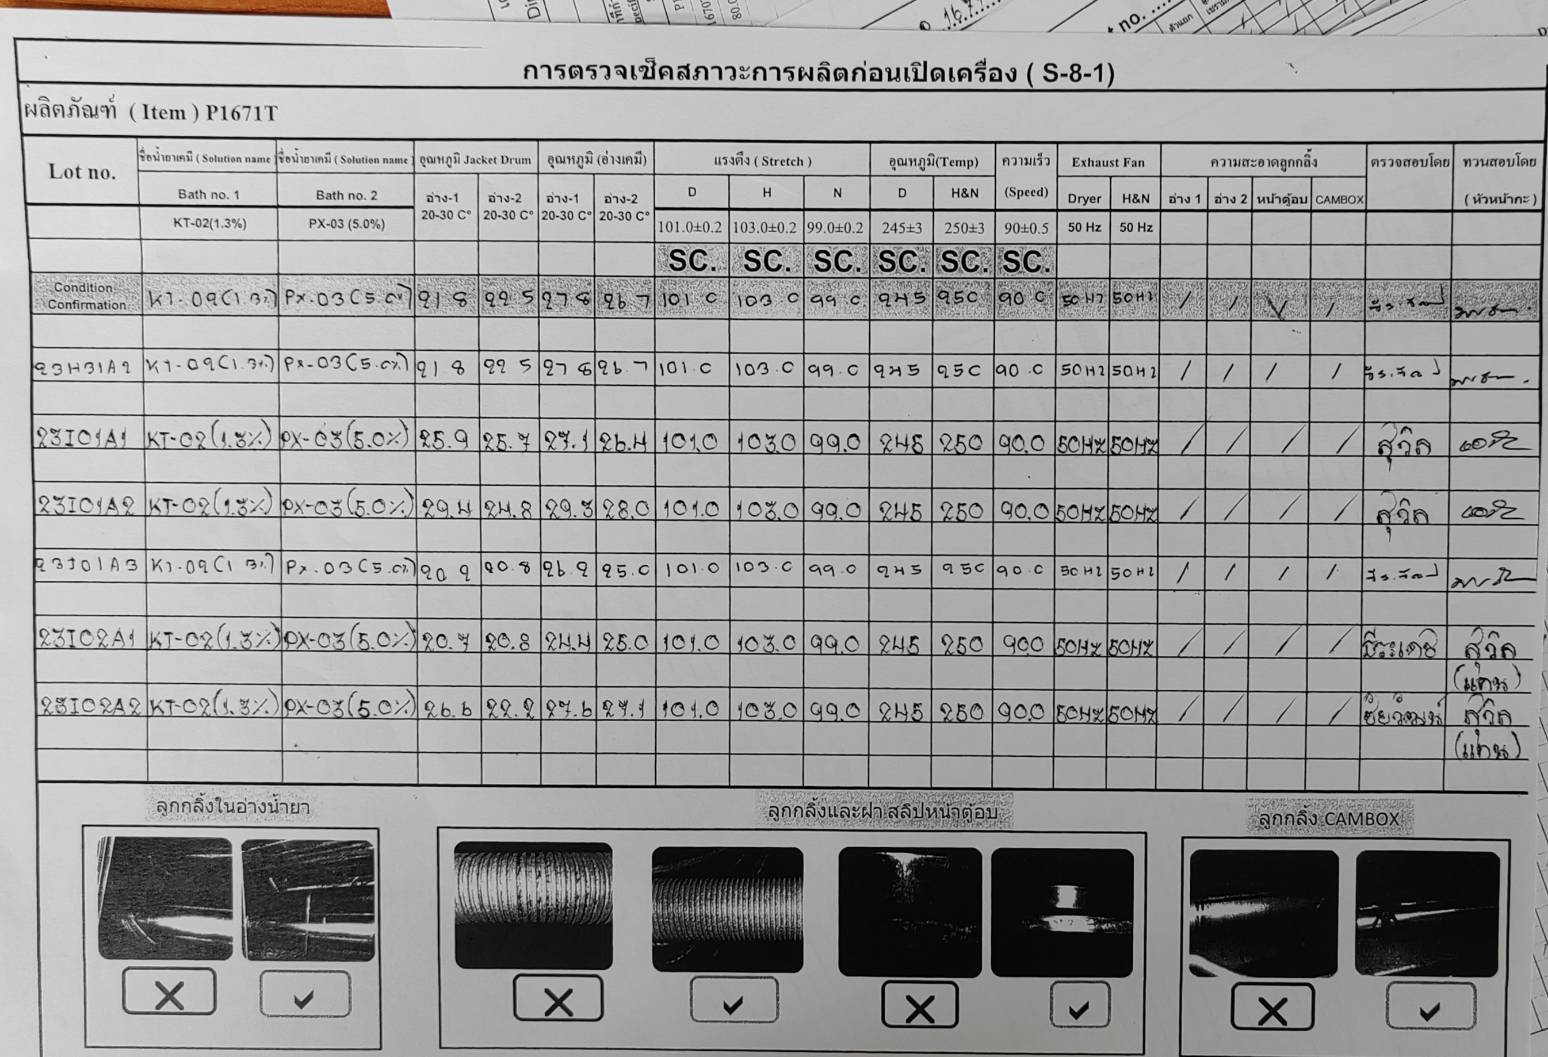 การตรวจเช็คสภาวะการผลิตก่อนเปิดเครื่อง ( S-8-1)
ผลิตภัณฑ์ ( Item ) P1671T
Lot no. ชื่อน้ำยาเคมี ( Solution name ) ชื่อน้ำยาเคมี ( Solution name ) อุณหภูมิ Jacket Drum อุณหภูมิ (อ่างเคมี) แรงดึง ( Stretch ) อุณหภูมิ(Temp) ความเร็ว Exhaust Fan ความสะอาดลูกกลิ้ง ตรวจสอบโดย ทวนสอบโดย
Bath no. 1 Bath no. 2 อ่าง-1 อ่าง-2 อ่าง-1 อ่าง-2 D H N D H&N (Speed) Dryer H&N อ่าง 1 อ่าง 2 หน้าตู้อบ CAMBOX ( หัวหน้ากะ )
20-30 C° 20-30 C° 20-30 C° 20-30 C°
KT-02(1.3%) PX-03 (5.0%) 101.0±0.2 103.0±0.2 99.0±0.2 245±3 250±3 90±0.5 50 Hz 50 Hz
SC. SC. SC. SC. SC. SC.
Condition Confirmation KT-02(1.3%) PX-03(5.0%) 21.8 22.5 27.8 26.7 101.0 103.0 99.0 245 250 90.0 50Hz 50Hz / / V /
23H31A2 KT-02(1.3%) PX-03(5.0%) 21.8 22.5 27.8 26.7 101.0 103.0 99.0 245 250 90.0 50Hz 50Hz / / / /
23I01A1 KT-02(1.3%) PX-03(5.0%) 25.9 25.7 27.1 26.4 101.0 103.0 99.0 245 250 90.0 50Hz 50Hz / / / / สุวิต
23I01A2 KT-02(1.3%) PX-03(5.0%) 29.4 24.8 29.3 28.0 101.0 103.0 99.0 245 250 90.0 50Hz 50Hz / / / / สุวิต
23I01A3 KT-02(1.3%) PX-03(5.0%) 20.2 20.8 26.2 25.0 101.0 103.0 99.0 245 250 90.0 50Hz 50Hz / / / /
23I02A1 KT-02(1.3%) PX-03(5.0%) 20.7 20.8 24.4 25.0 101.0 103.0 99.0 245 250 90.0 50Hz 50Hz / / / / ธีระเดช สุวิต
(แทน)
23I02A2 KT-02(1.3%) PX-03(5.0%) 26.6 22.2 27.6 27.1 101.0 103.0 99.0 245 250 90.0 50Hz 50Hz / / / / ชัยวัฒน์ สุวิต
(แทน)
ลูกกลิ้งในอ่างน้ำยา ลูกกลิ้งและฝาสลิปหน้าตู้อบ ลูกกลิ้ง CAMBOX